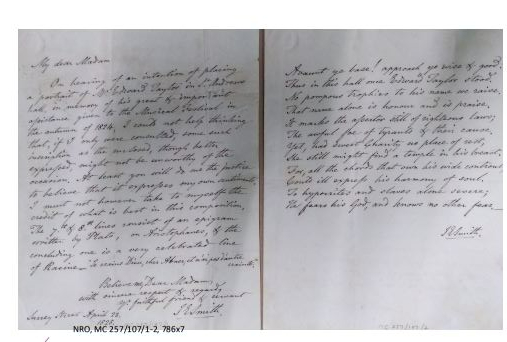 My dear Madam
On hearing of an intention of placing
a portrait of Mr Edward Taylor in St Andrews
hall, in memory of his great & important
assistance given to the Musical Festival in
the autumn of 1824, I could not help thinking
that, if I only were consulted some such
inscription as the enclosed, though better
expressed might not be unworthy of the
occasion. At least you will do me the justice
to believe that it expresses my own sentiments.
I must not however take to myself the
credit of what is best in this composition.
The 7th & 8th lines consist of an epigram
written by Plato, on Aristophanes, & the
concluding one is a very celebrated line
of Racine — "Je crains Dieu, cher Abner, et n'ai point d'autre
crainte".
Believe me, Dear Madam,
with sincere respect & regard
Yr faithful friend & servant
J E Smith.
Surrey Street April 22.
1825
Avaunt ye base! approach, ye wise & good!
Thus in this hall once Edward Taylor stood.
No pompous trophies to his name we raise,
That name alone is honour and is praise.
It marks the assertor still of righteous laws;
The awful foe of tyrants & their cause.
Yet, had sweet Charity no place of rest,
She still might find a temple in his breast.
For, all the chords that own his wide controul
Could ill express his harmony of soul.
To hypocrites and slaves alone severe;
He fears his God, and knows no other fear.—
J E Smith.
NRO, MC 257/107/1-2, 786x7
MC 257/107/2